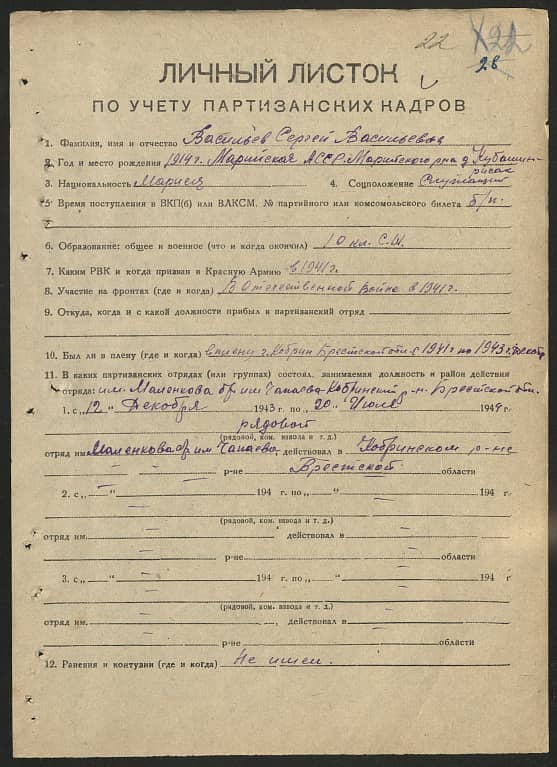 22
22
28
ЛИЧНЫЙ ЛИСТОК
ПО УЧЕТУ ПАРТИЗАНСКИХ КАДРОВ
1. Фамилия, имя и отчество Васильев Сергей Васильевич
2. Год и место рождения 1914 г. Марийская АССР. Марийского р-на д. Кубашин-
рисак
3. Национальность Мариец 4. Соцположение Служащий
5. Время поступления в ВКП(б) или ВЛКСМ. № партийного или комсомольского билета б/п.
6. Образование: общее и военное (что и когда окончил) 10 кл. С.Ш.
7. Каким РВК и когда призван в Красную Армию в 1941 г.
8. Участие на фронтах (где и когда) В Отечественной Войне в 1941 г.
9. Откуда, когда и с какой должности прибыл в партизанский отряд
10. Был ли в плену (где и когда) в плену г. Кобрин Брестской обл. с 1941 г по 1943 г. декабр
11. В каких партизанских отрядах (или группах) состоял, занимаемая должность и район действия
отряда: им. Маленкова бр. им Чапаева Кобринский р-н. Брестской обл.
1. с „12" Декабря 1943 г. по „20" Июля 1944 г.
рядовой
(рядовой, ком. взвода и т. д.)
отряд им. Маленкова бр. им. Чапаева, действовал в Кобринском р-не
р-не Брестской области
2. с „ — " 194 г. по „ — " 194 г.
(рядовой, ком. взвода и т. д.)
отряд им. — действовал в —
р-не — области
3. с „ — " 194 г. по „ — " 194 г
(рядовой, ком. взвода и т. д.)
отряд им. — , действовал в —
р-не — области
12. Ранения и контузии (где и когда) Не имел.